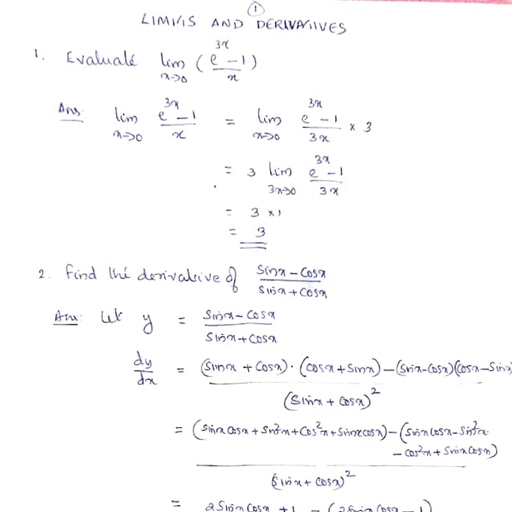 ①
LIMITS AND DERIVATIVES
1. Evaluate lim x→0 (e^3x −1)/x
Ans: lim x→0 (e^3x −1)/x = lim x→0 (e^3x −1)/3x × 3
= 3 lim 3x→0 (e^3x −1)/3x
= 3 ×1
= 3
2. Find the derivative of (Sinx − Cosx)/(Sinx + Cosx)
Ans: Let y = (Sinx − Cosx)/(Sinx + Cosx)
dy/dx = ((Sinx + Cosx)·(Cosx + Sinx) − (Sinx−Cosx)(Cosx−Sinx)/(Sinx + Cosx)^2
= (Sinx Cosx + Sin²x + Cos²x + Sinx cosx) − (Sinx Cosx − Sin²x
− Cos²x + Sinx Cosx)
/(Sinx + Cosx)^2
= 2 Sinx Cosx + 1 − (2 Sinx Cosx − 1)